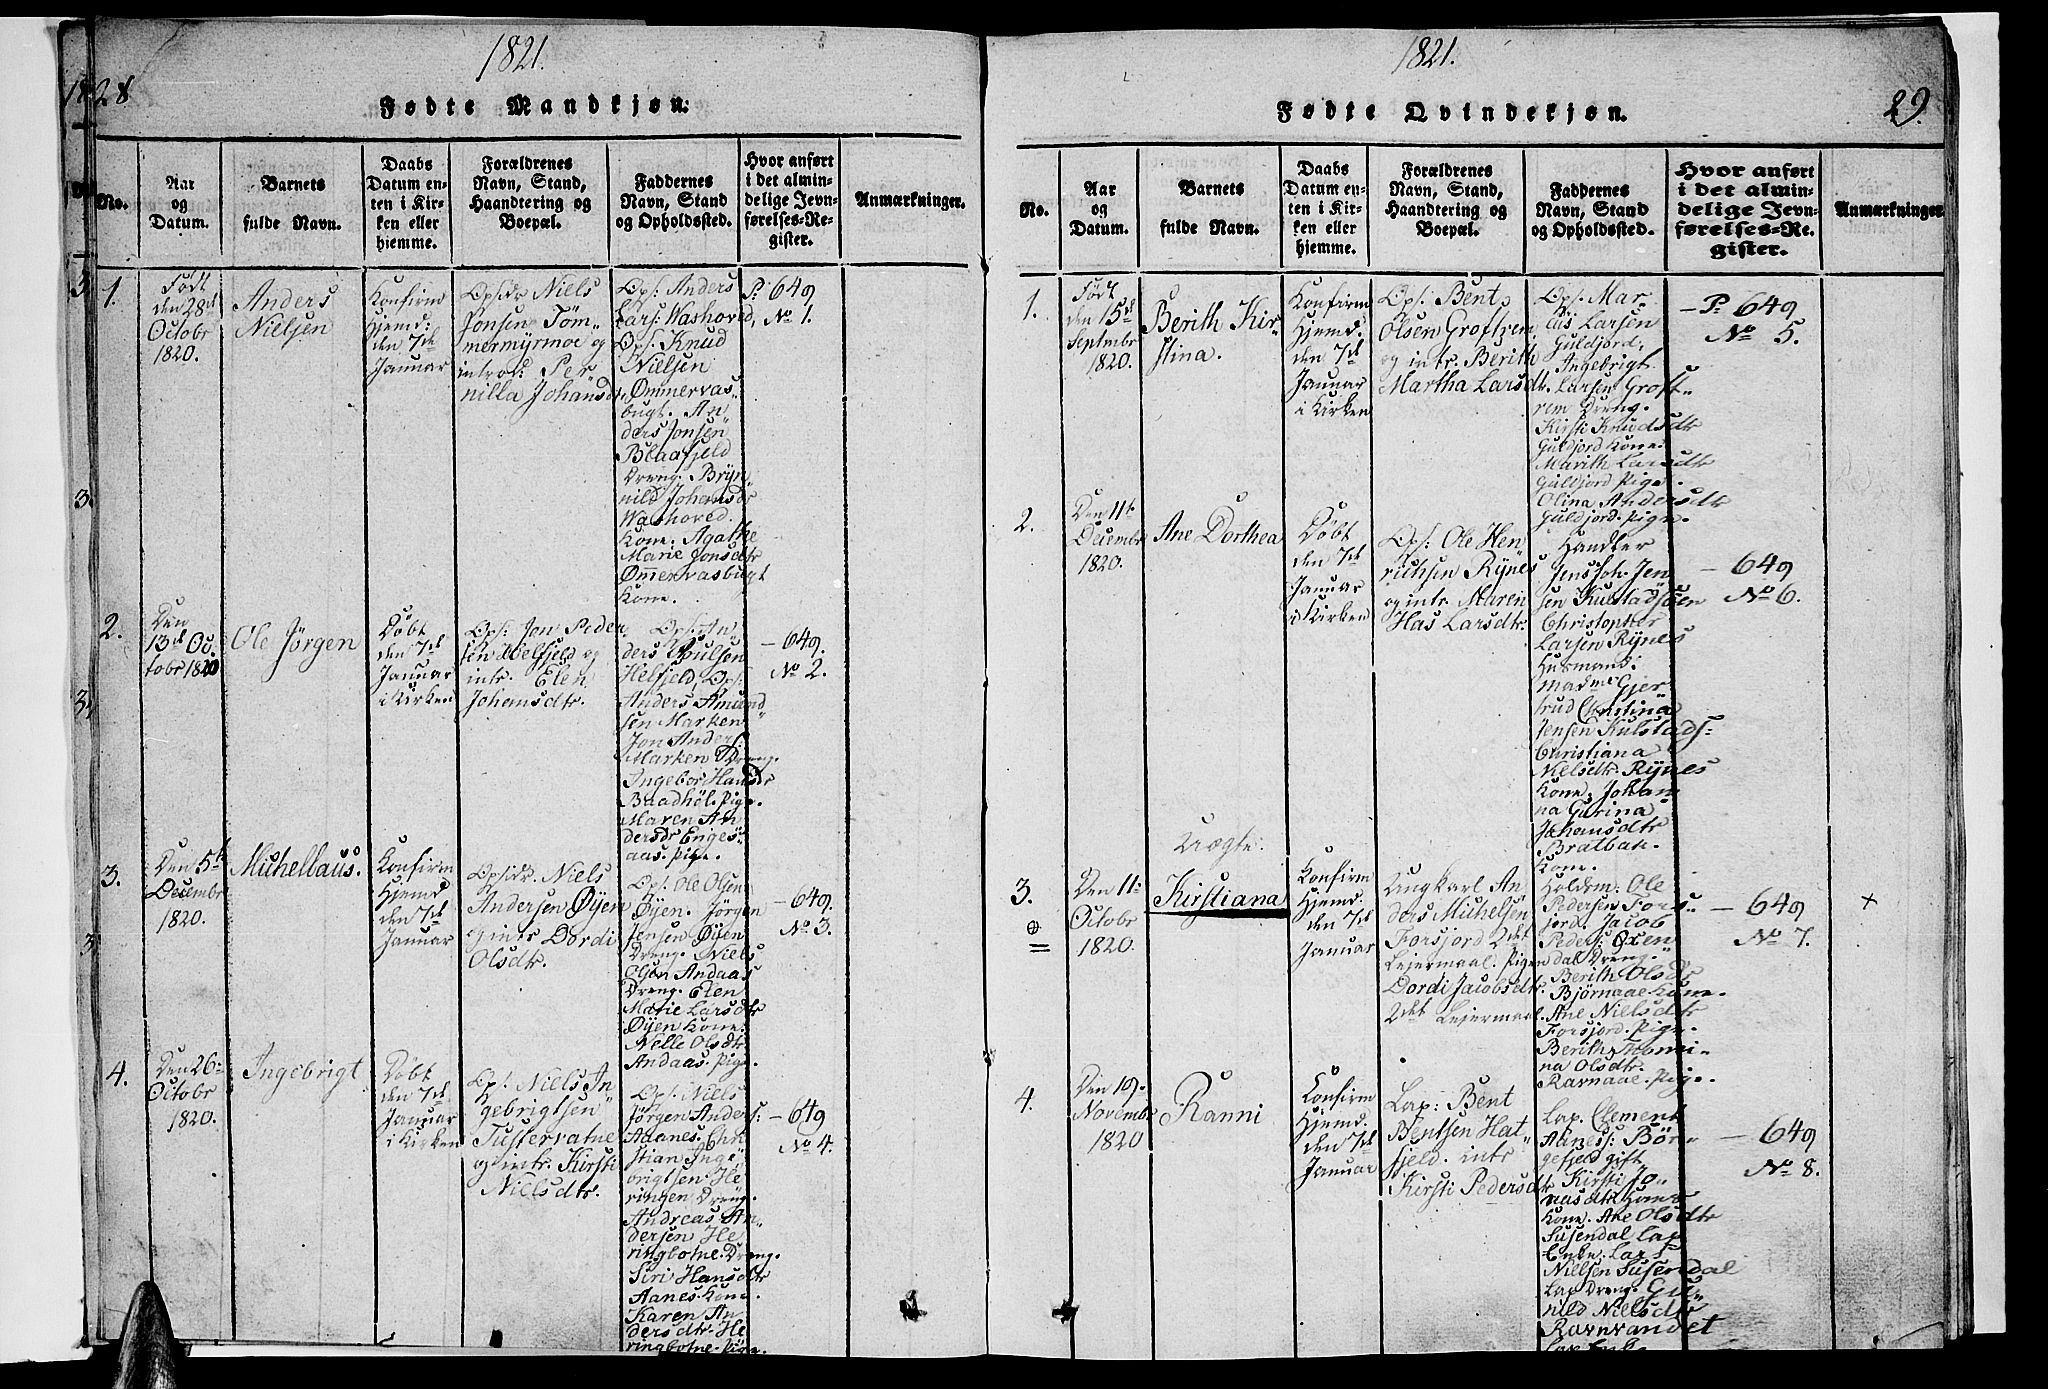 1821.
28
Fødte Mandkjøn.
No.
Aar
og
Datum.
Barnets
fulde Navn.
Daabs
Datum en-
ten i Kir-
ken eller
hjemme.
Forældrenes
Navn, Stand,
Haandtering og
Boepæl.
Faddernes
Navn, Stand
og Opholdssted.
Hvor anført
i det almin-
delige Jevn-
førelses-Re-
gister.
Anmærkninger.
1.
Født
den 28de
Octobr
1820.
Anders
Nielsen
Konfirm
Hjemd:
den 7de
Januar
Opsidr Niels
Jonsen Töm-
mermyrmoe og
introd: Per
nilla Johansdr
Ops: Anders
Lars: Washoved,
Ops: Knud
Nielsen
Ømmervas-
bugt. An
ders Jonsen
Blaafjeld
Dreng. Bryn-
nild Johansdr
Washoved
Kone. Agathe
Marie Jonsdtr
Ømmervasbugt
Kone.
P: 649
No 1.
2.
Den
13de Oc-
tobr 1820
Ole Jörgen
Döbt
den 7de
Januar
i Kirken
Ops: Jon Peder
sen Helfjeld og
intr. Elen
Johansdtr.
Ops: An-
ders Poulsen
Helfjeld, Ops:
Anders Amund
sen Marken
Jon Anders:
Marken Dreng.
Ingebor Hansdr
Baadhöl. Pige.
Maren An
dersdr Enges-
aas. Pige.
— 649.
No 2.
3.
Den 5te
Decembr
1820.
Michellaus.
Konfirm
Hjemd
den 7de
Januar
Opsidr. Niels
Andersen Øyen
og intr Dordi
Olsdtr.
Ops: Ole Olsen
Øyen. Jörgen
Jensen Øyen
Dreng. Niels
Olsen Andaas
Dreng. Elen
Marie Larsdtr
Øyen Kone.
Nelle Olsdtr
Andaas. Pige.
— 649.
No 3.
4.
Den 26de
Octobr
1820.
Ingebrigt
Döbt
den 7de
Januar
i Kirken
Ops: Niels In
gebrigtsen
Tustervatne
og intr. Kirsti
Nielsdtr.
Ops. Niels
Jörgen Anders:
Aanes. Chri
stian Inge
brigtsen He
ringen Dreng.
Andreas An-
dersen He
ringbotne. Dreng.
Siri Hansdtr
Aanes. Kone.
Karen An
dersdtr. He
ringbotne. Pige.
— 649
No 4.
1821.
29.
Fødte Qvindekjøn.
No.
Aar
og
Datum.
Barnets
fulde Navn.
Daabs
Datum en-
ten i Kir-
ken eller
hjemme.
Forældrenes
Navn, Stand,
Haandtering og
Boepæl.
Faddernes
Navn, Stand
og Opholdssted.
Hvor anført
i det almin-
delige Jevn-
førelses-Re-
gister.
Anmærkninger
1.
Født
den 15de
Septembr
1820.
Berith Kir-
stina.
Konfirm
Hjemd.
den 7de
Januar
i Kirken
Ops: Bent
Olsen Groftrem
og intr. Berith
Martha Larsdtr.
Ops: Mar-
cus Larsen
Guldjord,
Ingebrigt
Larsen Groft-
rem Dreng.
Kirsti Knudsdtr
Guldjord Kone.
Marith Larsdtr
Guldjord Pige.
Olina Andersdtr
Guldjord. Pige.
— P. 649
No 5.
2.
Den 11te
Decembr
1820.
Ane Dorthea
Döbt
den 7de
Januar
i Kirken
Ops: Ole Hen
richsen Rynes
og intr. Maren
Has Larsdtr.
Handler
Jens Joh. Jen
sen Kulstadsöen
Christopher
Larsen Rynes
Husmand:
Madme Gjer
trud Christina
Jensen Kulstads:
Christiana
Nielsdtr. Rynes
Kone, Johan
na Gurina
Johansdtr
Bratbak.
Kone.
— 649
No 6.
Uægte.
3.
Den 11:
Octobr
1820.
Kirstiana
Konfirm
Hjemd.
den 7de
Januar
Ung Karl An
ders Michelsen
Forsjord 2det
Lejermaal. Pigen
Dordi Jacobsdtr.
2det Lejermaal.
Holdsm: Ole
Pedersen Fors-
jord. Jacob
Peders: Oxen
dal Dreng.
Berith Olsdr
Björnaae Kone.
Ane Nielsdtr
Forsjord. Pige.
Berith Romi-
na Olsdtr.
Ravnaae. Pige.
— 649
No 7.
+
4.
Den 19de
Novembr
1820
Ranni
Konfirm
Hjemd.
den 7de
Januar
Lap: Bent
Bentsen Hat-
fjeld. intr
Kirsti Pedersdtr
Lap. Clement
Aanes: Bör-
gefjeld gift
Kirsti Jo-
naasdtr Hams
Kone. Ane Olsdtr
Susendal Lap
Enke. Lars
Nielsen Susendal
Lap Dreng. Gu-
nild Nielsdtr
Ravnvandet
Lap Enke
— 649
No 8.